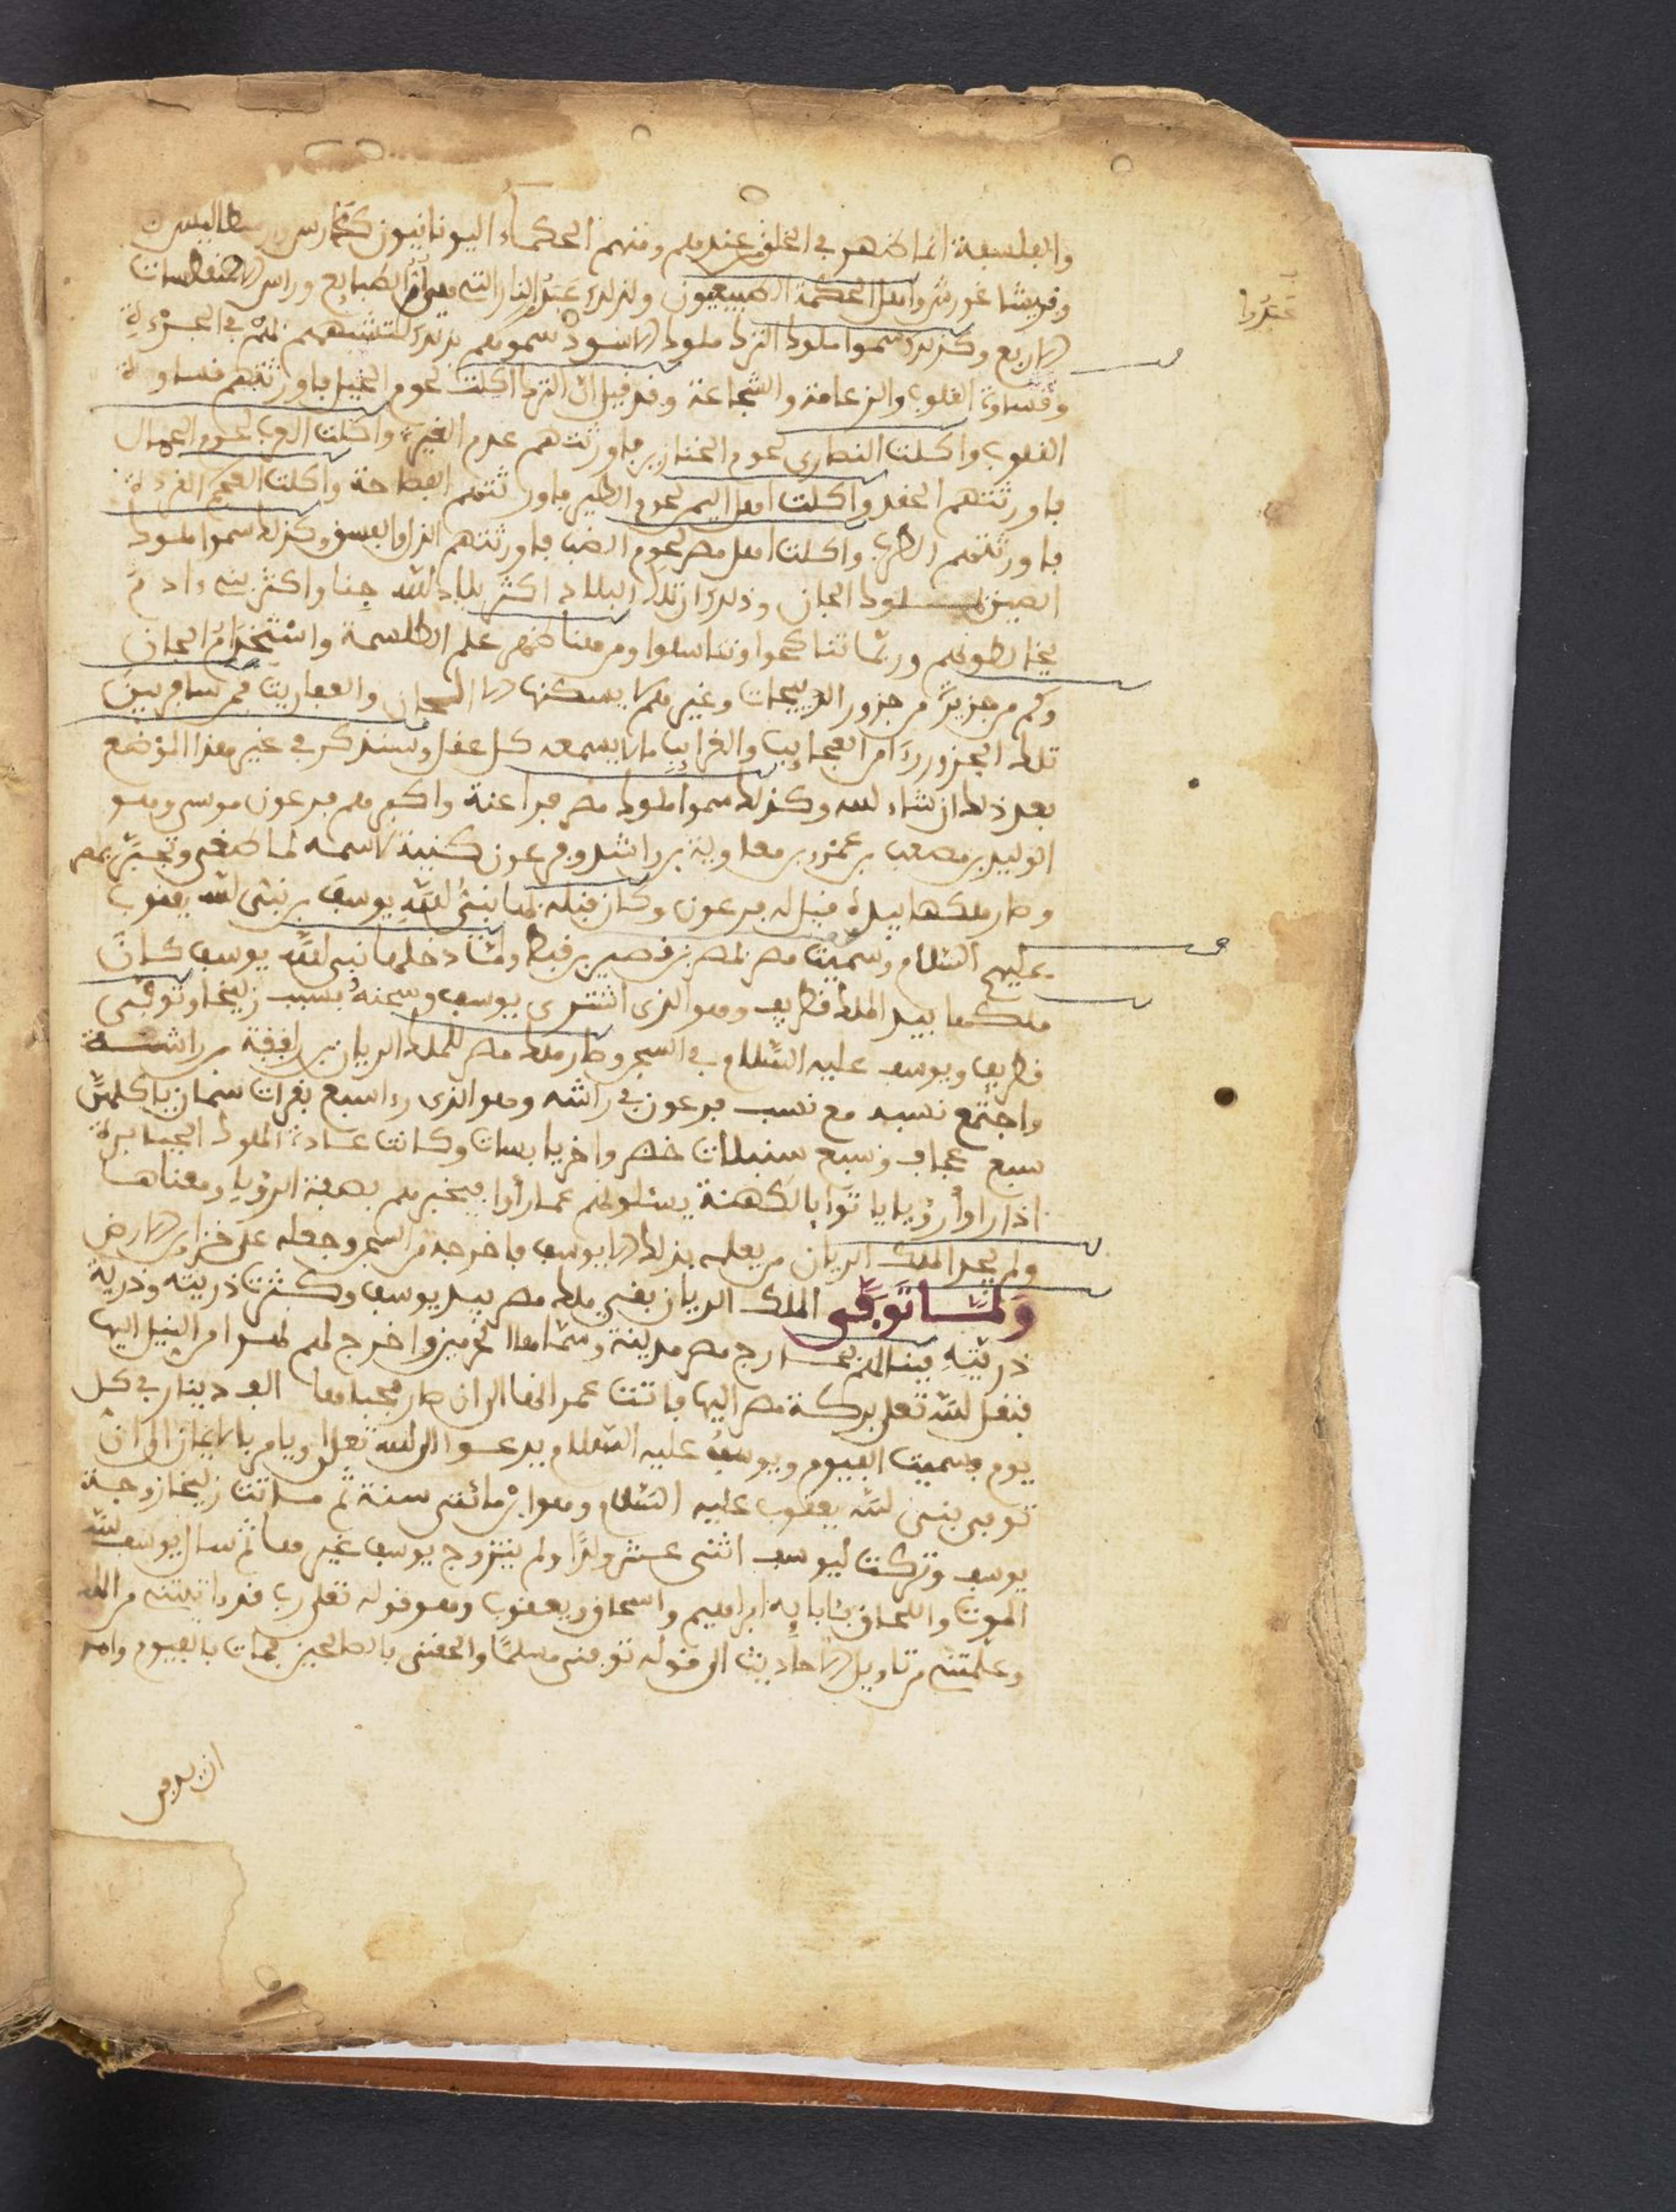 والفلسفة انما ظهر في الخلق عندهم ومنهم الحكماء اليونانيون
وفيثاغورش واهل الحكمة الطبيعيون ولذلك عبدوا النار التي هي ام الطبايع وراس الاسطقسات
عبدوا
الاربع وكذلك سموا ملوك الترك ملوك الاسود سموهم بذلك لتشبههم بهم في الجرءة
وقساوة القلوب والزعامة والشجاعة وقد قيل ان الترك اكلت لحوم الخيل فاورثتهم قساوة
القلوب واكلت النصارى لحوم الخنازير فاورثتهم عدم الغيرة واكلت العرب لحوم الجمال
فاورثتهم الحقد واكلت اهل اليمن لحوم الطير فاورثتهم الفصاحة واكلت العجم القردة
فاورثتهم الطرب واكلت اهل مصر لحوم الضب فاورثتهم وكذلك سموا ملوك
الصين ملوك الجان وذلك ان تلك البلاد اكثر بلاد الله جنا واكثر بني ءادم
يخالطونهم وربما تناكحوا وتناسلوا ومن هنا ظهر علم الطلسمة واستخدام الجان
وكم من جزيرة من جزور الذيبجات وغيرهم لا يسكنها الا الجان والعفاريت فمن سافر بين
تلك الجزور رءا من العجايب والغرايب ما لا يسمعه كل عقل وسنذكر في غير هذا الموضع
بعد ذلك ان شاء الله وكذلك سموا ملوك مصر فراعنة واكبرهم فرعون موسى وهو
الوليد بن مصعب بن عمرو بن معاوية بن راشد وفرعون كنية لاسمه لما طغى وتجبر بمصر
وصار ملكها بيده قيل له فرعون وكان قبله بها نبي الله يوسف بن نبي الله يعقوب
عليهم السلام وسميت مصر بمصر بن قصير بن قبط ولما دخلها نبي الله يوسف كان
ملكها بيد الملك قطريف وهو الذي اشترى يوسف وسجنه بسبب زليخا وتوفي
قطريف ويوسف عليه السلام في السجن وصار ملك مصر للملك الريان بن رافقة بن راشة
واجتمع نسبه مع نسب فرعون في راشه وهو الذي رءا سبع بقرات سمان ياكلهن
سبع عجاف وسبع سنبلات خضر واخر يابسات وكانت عادة الملوك الجبابرة
اذا راوا رؤيا ياتوا بالكهنة يسئلونهم عما رأوا فيخبرهم بصفة الرؤيا ومعناها
ولم يجد الملك الريان من يعلمه بذلك الا يوسف فاخرجه من السجن وجعله على خزاين الارض
ولما توفي الملك الريان بقي ملك مصر بيد يوسف وكثرت ذريته وذرية
ذريته فبنا لهم خارج مصر مدينة وسماها الحرميز واخرج لهم لهوا من النيل اليها
فنقل الله تعلى بركة مصر اليها فاتت عمر الخا الى ان صار مجباها الف دينار في كل
يوم وسميت الفيوم ويوسف عليه السلام يدعوا الى الله تعلى ويامر بالايمان الى ان
توفي نبي الله يعقوب عليه السلام وهو ابن مائتي سنة ثم ماتت زليخا زوجة
يوسف وتركت ليوسف اثني عشر ولدا ولم يتزوج يوسف غيرها ثم سال يوسف الله
الموت واللحاق بئابايه ابراهيم واسحاق ويعقوب وهو قوله تعلى رب قد اتيتني من الملك
وعلمتني من تاويل الاحاديث الى قوله توفني مسلما والحقني بالصالحين فمات بالفيوم وامر
ان يدفن